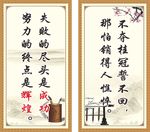 失败的尽头是成功
努力的终点是辉煌。
不夺桂冠誓不回。
那怕销得人憔悴。